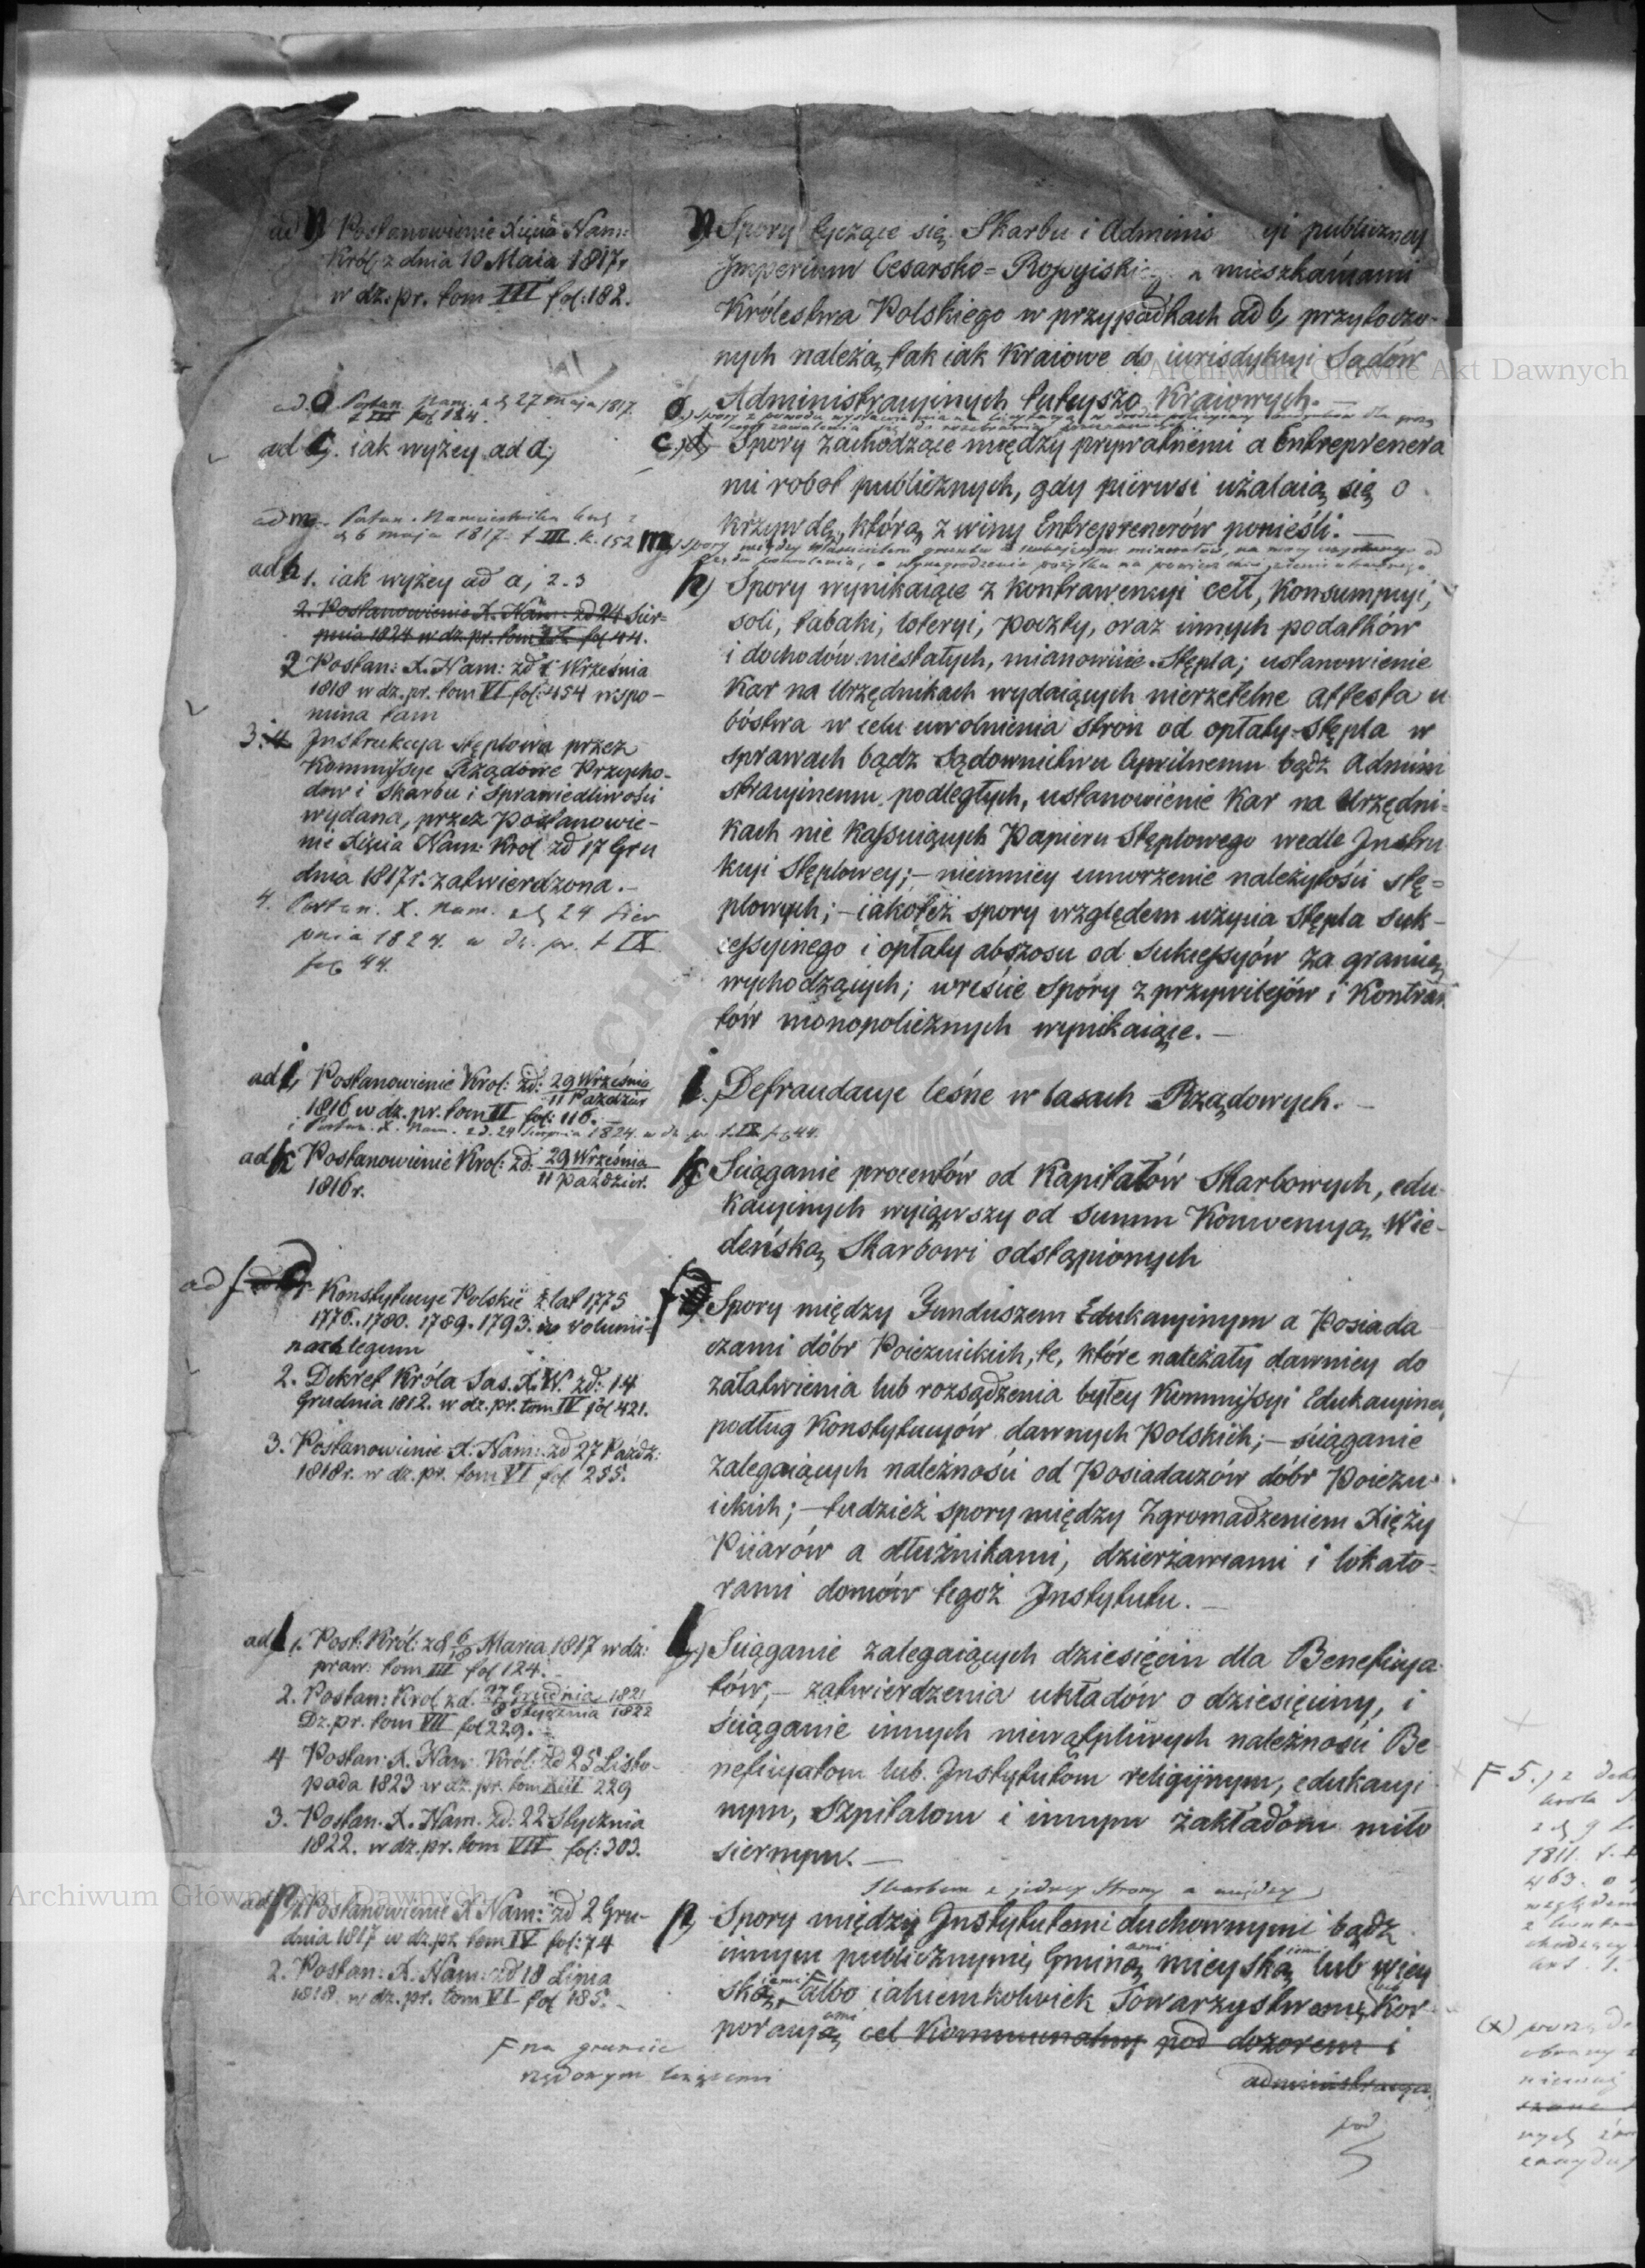 ad n) Postanowienie Xięcia Nam:
Król: z dnia 10 Maia 1817 r
w dz. pr. tom III fol: 182.
ad. o. Postan. Nam. z d 27 maja 1817.
t III fol 124.
ad c). iak wyżey ad a;
ad m. Postan. Namiestnika
d 6 maja 1817. t III. k. 152
ad h 1. iak wyżey ad a; 2-3
2. Postanowienie X. Nam: zd 24 Sier-
pnia 1824 w dz. pr. tom IX fol 44.
2 Postan: X. Nam: zd 1 Września
1818 w dz. pr. tom VI fol: 154 wspo-
mina tam
3. 4. Instrukcya stęplowa przez
Kommissye Rządowe Przycho-
dow i Skarbu i Sprawiedliwości
wydana, przez Postanowie-
nie Xięcia Nam: Krol zd 17 Gru
dnia 1817 r. zatwierdzona. -
4. Postan. X. Nam. z d 24 Sier
pnia 1824. w dz. pr. t IX
fol 44.
ad i, Postanowienie Krol: zd: 29 Września
11 Paździer
1816 w dz. pr. tom II fol: 116. -
i Postan. X. Nam. z d. 24 Sierpnia 1824. w dz pr t. IX fol 44.
ad k Postanowienie Krol: zd: 29 Września
11 Paździer.
1816 r.
ad f Konstytucye Polskie z lat 1775
1776. 1780. 1789. 1793. w volumi-
nach legum
2. Dekret Króla Sas. X. W. zd: 14
Grudnia 1812. w dz. pr. tom IV fol 421.
3. Postanowienie X. Nam: zd 27 Paźdz:
1818 r. w dz. pr. tom VI fol 255.
ad l 1. Post: Król: zd 6/18 Marca 1817 w dz:
praw: tom III fol 124. -
2. Postan: Krol zd. 27 Grudnia 1821
8 Stycznia 1822
Dz. pr. tom VII fol 229. -
4 Postan: X. Nam: Król: zd 25 Listo-
pada 1823 w dz. pr. tom VIII 229
3. Postan. X. Nam. zd: 22 Stycznia
1822. w dz. pr. tom VII fol: 303.
ad p, 1. Postanowienie X Nam: zd 2 Gru-
dnia 1817 w dz. pr. tom IV fol: 74
2. Postan: X. Nam: zd 18 Lipca
1818. w dz. pr. tom VI fol 185. -
F na gruncie
rządowym leżącemi
n) Spory tyczące się Skarbu i Adminis yi publiczney
Imperium Cesarsko=Rossyiski z mieszkańcami
Królestwa Polskiego w przypadkach ad b, przytoczo-
nych należą tak iak kraiowe do iurisdykcyi Sądów
Administracyinych tuteyszo kraiowych. -
o.) Spory z powodu
c.) d, Spory zachodzące między prywatnemi a Entreprenera
mi robot publicznych, gdy pierwsi użalaią się o
krzywdę, którą z winy Entreprenerów ponieśli. -
m) Spory między właścicielem gruntu a minerałów, na mocy uzyskanego od
Rządu pozwolenia, o wynagrodzenie pożytku na powierzchni ziemi utraconego.
h) Spory wynikaiące z kontrawencyi ceł, konsumpcyi,
soli, tabaki, loteryi, poczty, oraz innych podatków
i dochodów niestałych, mianowicie Stępla; ustanowienie
Kar na Urzędnikach wydaiących nierzetelne attesta u
bóstwa w celu uwolnienia stron od opłaty stępla w
sprawach bądz Sądownictwu Cywilnemu bądz Admini
stracyinemu podległych, ustanowienie kar na Urzędni-
kach nie kassuiących Papieru Stęplowego wedle Instru
kcyi Stęplowey; - niemniey umorzenie należytości stę=
plowych; - iakoteż spory względem użycia Stępla suk-
cessyinego i opłaty abszosu od sukcessyów za granicę
wychodzących; wreście Spóry z przywilejów i Kontrak
tów monopolicznych wynikaiące. -
i.) Defraudacye leśne w lasach Rządowych. -
k. Sciąganie procentów od Kapitałów Skarbowych, edu-
kacyinych wyiąwszy od Summ Konwencyą Wie-
deńską Skarbowi odstąpionych
f Spory między Funduszem Edukacyinym a Posiada
czami dóbr Poiezuickich, te, które należały dawniey do
załatwienia lub rozsądzenia byłey Kommissyi Edukacyiney
podług Konstytucyów dawnych Polskich; - ściąganie
zalegaiących należności od Posiadaczów dóbr Poiezu-
ickich; - tudzież spory między Zgromadzeniem Xięży
Piiarów a dłużnikami, dzierżawcami i lokato-
rami domów tegoż Instytutu. -
l) Sciąganie zalegaiących dziesięcin dla Beneficya-
tów, - zatwierdzenia układów o dziesięciny, i
ściąganie innych niewątpliwych należności Be-
neficyatom lub Instytutom religijnym, edukacyi
nym, Szpitalom i innym zakładom miło
siernym. -
Skarbem z jedney strony a między
p, Spory między Instytutemi duchownymi bądz
innym publicznymi, Gminą mieyską lub wiey
ską, F albo iakiemkolwiek Towarzystwem, Kor-
poracyą cel Kommunalny pod dozorem i
administracyą
pod
F 5.) z
1811. t.
463.
art. 1.
(x)
Archiwum Główne Akt Dawnych
Archiwum Główne Akt Dawnych